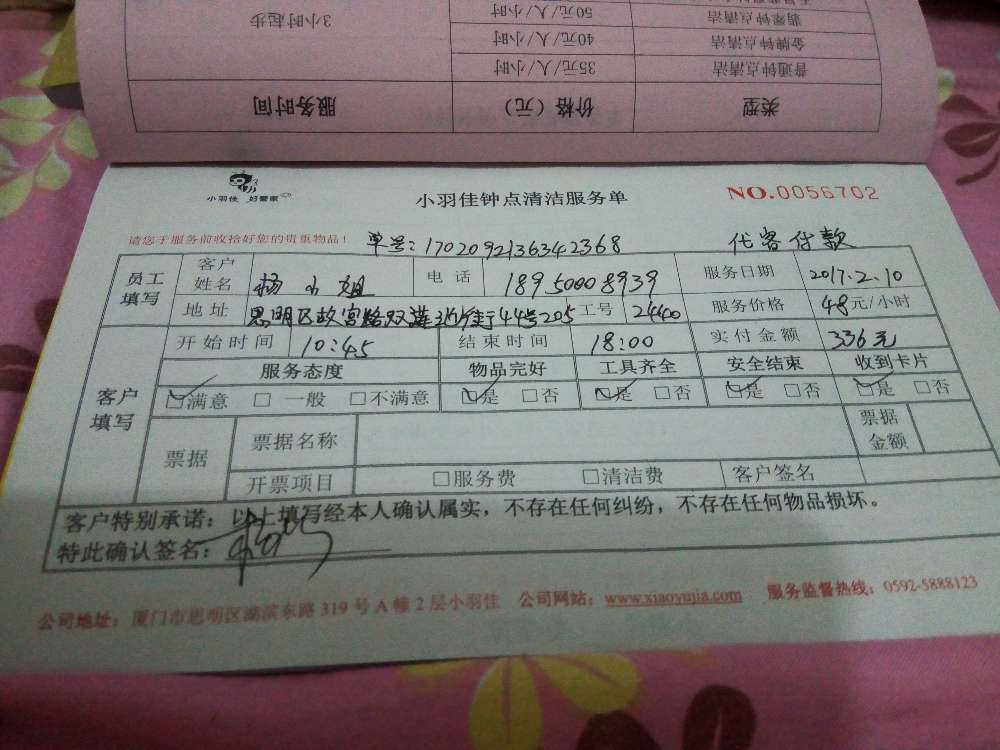 50元/人/小时 翡翠钟点清洁
3小时起步 40元/人/小时 金牌钟点清洁
35元/人/小时 普通钟点清洁
服务时间 价格（元） 类型
小羽佳 好管家
小羽佳钟点清洁服务单
NO.0056702
请您于服务前收拾好您的贵重物品！ 单号：1702092136342368 代客付款
员工填写 客户姓名 杨小姐 电话 18950008939 服务日期 2017.2.10
地址 思明区故宫路双莲池街44号205 工号 2440 服务价格 48元/小时
客户填写 开始时间 10:45 结束时间 18:00 实付金额 336元
服务态度 物品完好 工具齐全 安全结束 收到卡片
☑满意 □一般 □不满意 ☑是 □否 ☑是 □否 ☑是 □否 ☑是 □否
票据 票据名称 票据金额
开票项目 □服务费 □清洁费 客户签名
客户特别承诺：以上填写经本人确认属实，不存在任何纠纷，不存在任何物品损坏。
特此确认签名：
公司地址：厦门市思明区湖滨东路319号A幢2层小羽佳 公司网站：www.xiaoyujia.com 服务监督热线：0592-5888123